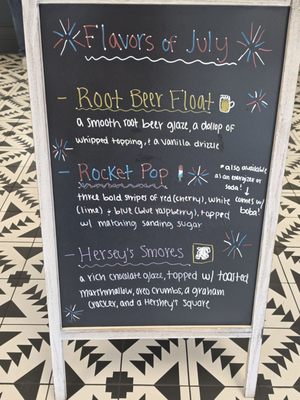 Flavors of July
- Root Beer Float
a smooth root beer glaze, a dollop of
whipped topping, & a vanilla drizzle
- Rocket Pop
*also available
as an energize or
soda!
comes w/
boba!
three bold stripes of red (cherry), white
(lime) + blue (blue raspberry), topped
w/ matching sanding sugar
- Hersey's Smores
a rich chocolate glaze, topped w/ toasted
marshmallow, oreo crumbs, a graham
cracker, and a Hershey's square